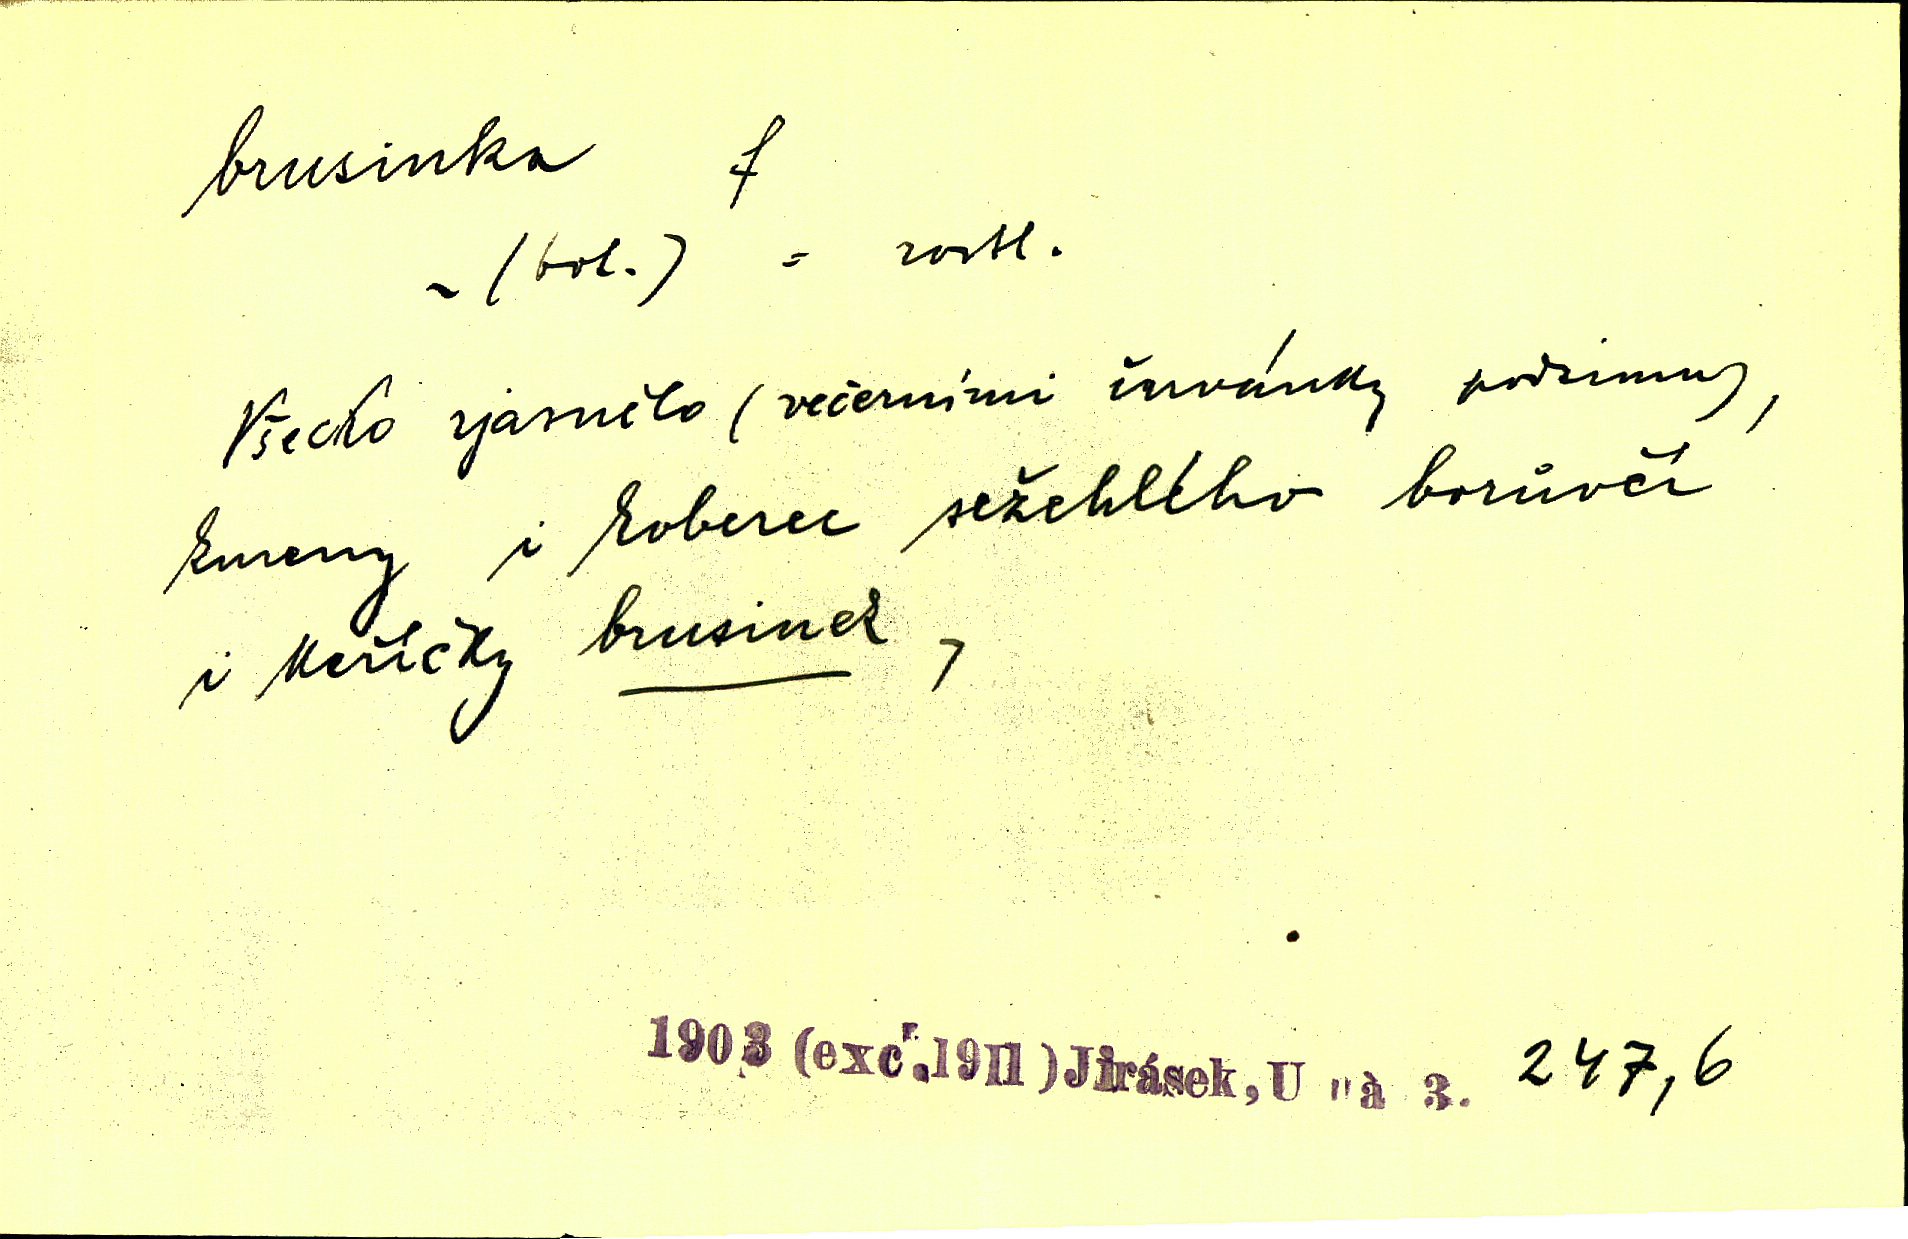 brusinka f
~ (bot.) = rostl.
Všecko zjasnělo (večerními červánky podzimu),
kmeny i koberec sežehlého borůvčí
i keříčky brusinek,
1903 (exc. 1911) Jirásek, U 3. 247,6